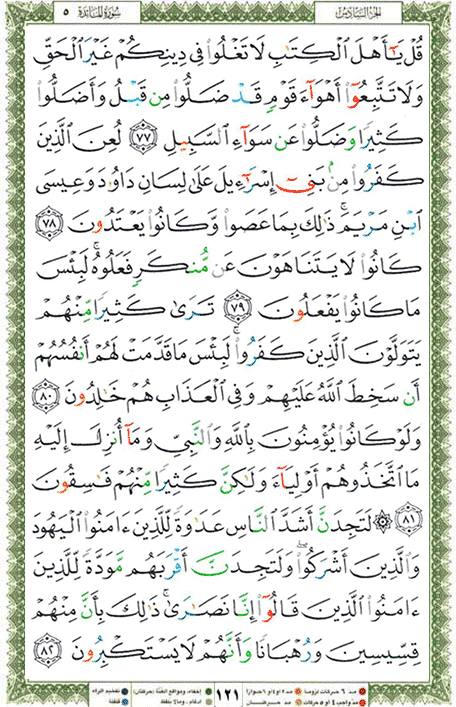 الجزء السادس سورة المائدة ٥
قُلْ يَٰٓأَهْلَ ٱلْكِتَٰبِ لَا تَغْلُوا۟ فِى دِينِكُمْ غَيْرَ ٱلْحَقِّ
وَلَا تَتَّبِعُوٓا۟ أَهْوَآءَ قَوْمٍ قَدْ ضَلُّوا۟ مِن قَبْلُ وَأَضَلُّوا۟
كَثِيرًا وَضَلُّوا۟ عَن سَوَآءِ ٱلسَّبِيلِ ٧٧ لُعِنَ ٱلَّذِينَ
كَفَرُوا۟ مِنۢ بَنِىٓ إِسْرَٰٓءِيلَ عَلَىٰ لِسَانِ دَاوُۥدَ وَعِيسَى
ٱبْنِ مَرْيَمَ ۚ ذَٰلِكَ بِمَا عَصَوا۟ وَّكَانُوا۟ يَعْتَدُونَ ٧٨
كَانُوا۟ لَا يَتَنَاهَوْنَ عَن مُّنكَرٍ فَعَلُوهُ ۚ لَبِئْسَ
مَا كَانُوا۟ يَفْعَلُونَ ٧٩ تَرَىٰ كَثِيرًا مِّنْهُمْ
يَتَوَلَّوْنَ ٱلَّذِينَ كَفَرُوا۟ ۚ لَبِئْسَ مَا قَدَّمَتْ لَهُمْ أَنفُسُهُمْ
أَن سَخِطَ ٱللَّهُ عَلَيْهِمْ وَفِى ٱلْعَذَابِ هُمْ خَٰلِدُونَ ٨٠
وَلَوْ كَانُوا۟ يُؤْمِنُونَ بِٱللَّهِ وَٱلنَّبِىِّ وَمَآ أُنزِلَ إِلَيْهِ
مَا ٱتَّخَذُوهُمْ أَوْلِيَآءَ وَلَٰكِنَّ كَثِيرًا مِّنْهُمْ فَٰسِقُونَ
٨١ ۞ لَتَجِدَنَّ أَشَدَّ ٱلنَّاسِ عَدَٰوَةً لِّلَّذِينَ ءَامَنُوا۟ ٱلْيَهُودَ
وَٱلَّذِينَ أَشْرَكُوا۟ ۖ وَلَتَجِدَنَّ أَقْرَبَهُم مَّوَدَّةً لِّلَّذِينَ
ءَامَنُوا۟ ٱلَّذِينَ قَالُوٓا۟ إِنَّا نَصَٰرَىٰ ۚ ذَٰلِكَ بِأَنَّ مِنْهُمْ
قِسِّيسِينَ وَرُهْبَانًا وَأَنَّهُمْ لَا يَسْتَكْبِرُونَ ٨٢
١٢١